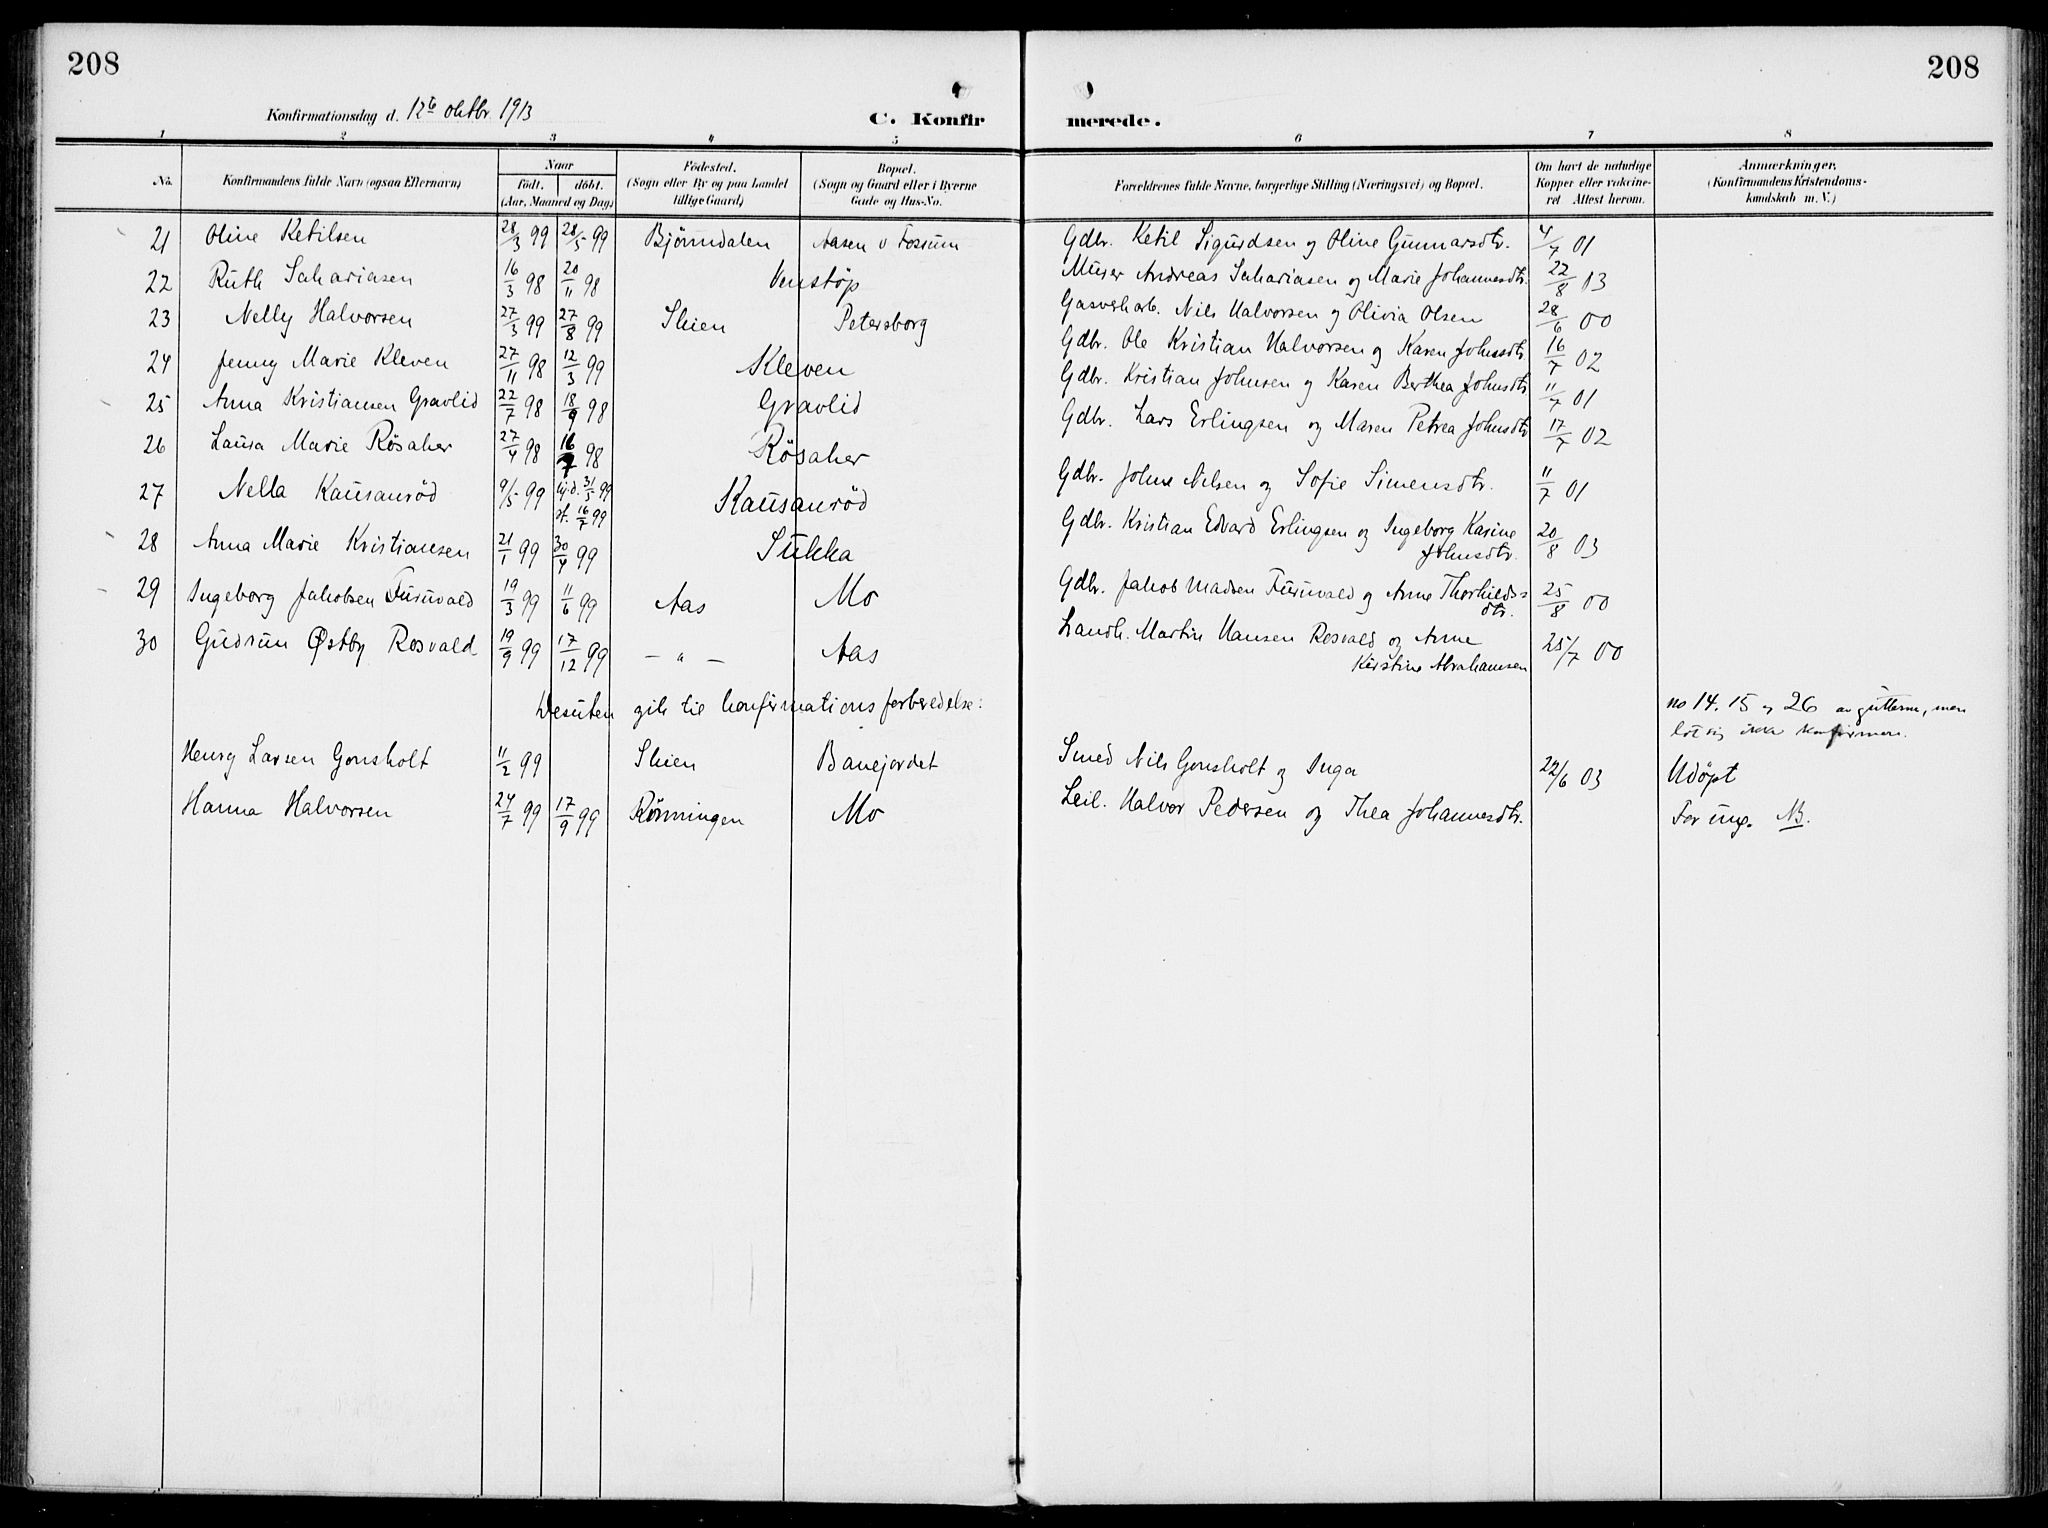 208
208
Konfirmationsdag d. 12te oktbr 1913
C. Konfirmerede.
1 2 3 4 5 6 7 8
No. Konfirmandens fulde Navn (ogsaa Efternavn) Naar født. døbt. (Aar, Maaned og Dag) Fødested. (Sogn eller By og paa Landet tillige Gaard) Bopæl. (Sogn og Gaard eller i Byerne Gade og Hus-No. Forældrenes fulde Navne, borgerlige Stilling (Næringsvei) og Bopæl. Om havt de naturlige Kopper eller vakcineret Attest herom. Anmærkninger. (Konfirmandens Kristendomskundskab m. V.)
21 Oline Ketilsen 28/3 99 28/5 99 Bjørndalen Aasen v Fossum Gdbr. Ketil Sigurdsen og Oline Gunnarsdtr. 4/7 01
22 Ruth Sakariasen 16/3 98 20/11 98 Venstøp Murer Andreas Sakariasen og Marie Johannesdtr. 22/8 03
23 Nelly Halvorsen 27/3 99 27/8 99 Skien Petersborg Gasverkarb. Nils Halvorsen og Olivia Olsen 28/6 00
24 Jenny Marie Kleven 27/11 98 12/3 99 Kleven Gdbr. Ole Kristian Halvorsen og Karen Johnsdtr 16/7 02
25 Anna Kristiansen Gravlid 22/7 98 18/9 98 Gravlid Gdbr. Kristian Johnsen og Karen Berthea Johnsdtr 11/7 01
26 Laura Marie Røsaker 27/4 98 16/7 98 Røsaker Gdbr. Lars Erlingsen og Maren Petrea Johnsdtr 17/7 02
27 Nella Kausanrød 9/5 99 hj.d. 31/5 99 st. 16/7 99 Kausanrød Gdbr. Johne Nilsen og Sofie Simensdtr. 11/7 01
28 Anna Marie Kristiansen 21/1 99 30/4 99 Sukka Gdbr. Kristian Edvard Erlingsen og Ingeborg Karine Johnsdtr. 20/8 03
29 Ingeborg Jakobsen Furuvald 19/3 99 11/6 99 Aas Mo Gdbr. Jakob Madsen Furuvald og Anne Thorkildsdtr. 25/8 00
30 Gudrun Østby Rosvald 19/9 99 17/12 99 — " — Aas Landh. Martin Hansen Rosvald og Anne Kirstine Abrahamsen 25/7 00
Desuten gik til konfirmationsforberedelse: no 14. 15 og 26 av gutterne, men
lot sig ikke konfirmere.
Henry Larsen Gonsholt 11/2 99 Skien Banejordet Smed Nils Gonsholt og Inga 22/6 03 Udøpt
Hanna Halvorsen 24/7 99 17/9 99 Rønningen Mo Leil. Halvor Pedersen og Thea Johannesdtr. For ung. NB.